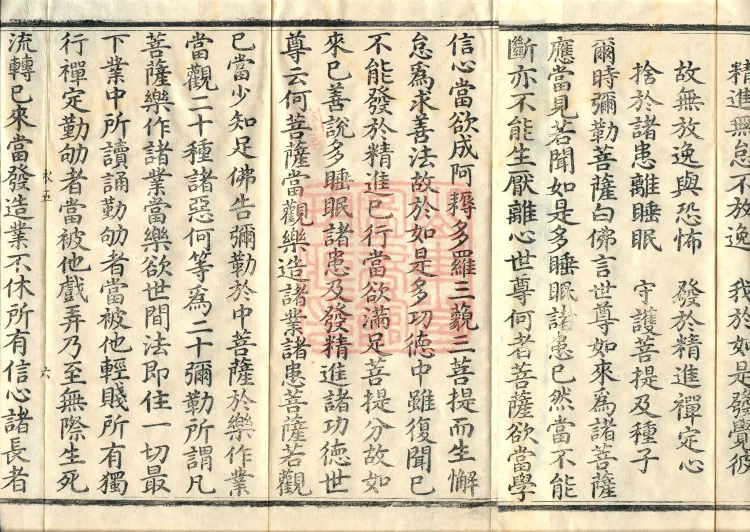 精進無怠不放逸　我於如是發覺彼
故無放逸與恐怖　發於精進禪定心
捨於諸患離睡眠　守護菩提及種子
爾時彌勒菩薩白佛言世尊如來爲諸菩薩
應當見若聞如是多睡眠諸患已然當不能
斷亦不能生厭離心世尊何者菩薩欲當學
信心當欲成阿耨多羅三藐三菩提而生懈
怠爲求善法故於如是多功德中雖復聞已
不能發於精進已行當欲滿足菩提分故如
來已善說多睡眠諸患及發精進諸功德世
尊云何菩薩當觀樂造諸業諸患菩薩若觀
已當少知足佛告彌勒於中菩薩於樂作業
當觀二十種諸惡何等爲二十彌勒所謂凡
菩薩樂作諸業當樂欲世間法即住一切最
下業中所讀誦勤劬者當被他輕賤所有獨
行禪定勤劬者當被他戲弄乃至無際生死
水五　六
流轉已來當發造業不休所有信心諸長者